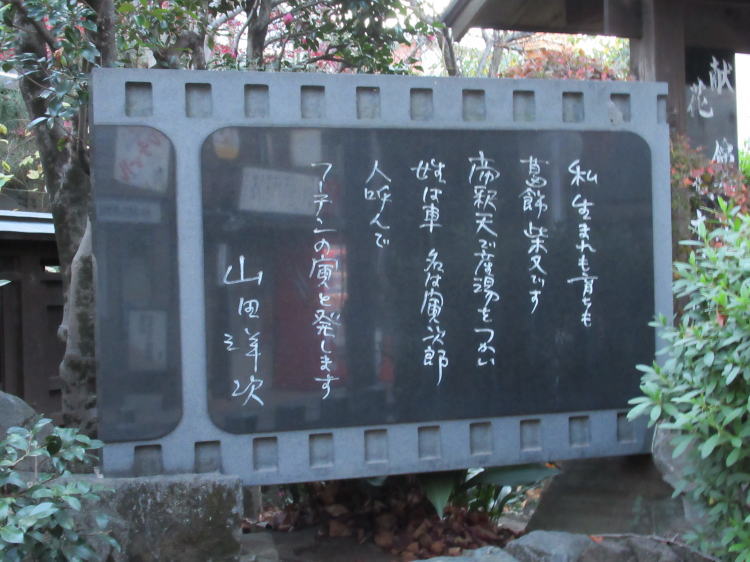 私生まれも育ちも
葛飾柴又です
帝釈天で産湯をつかい
姓は車 名は寅次郎
人呼んで
フーテンの寅と発します
山田洋次
献花